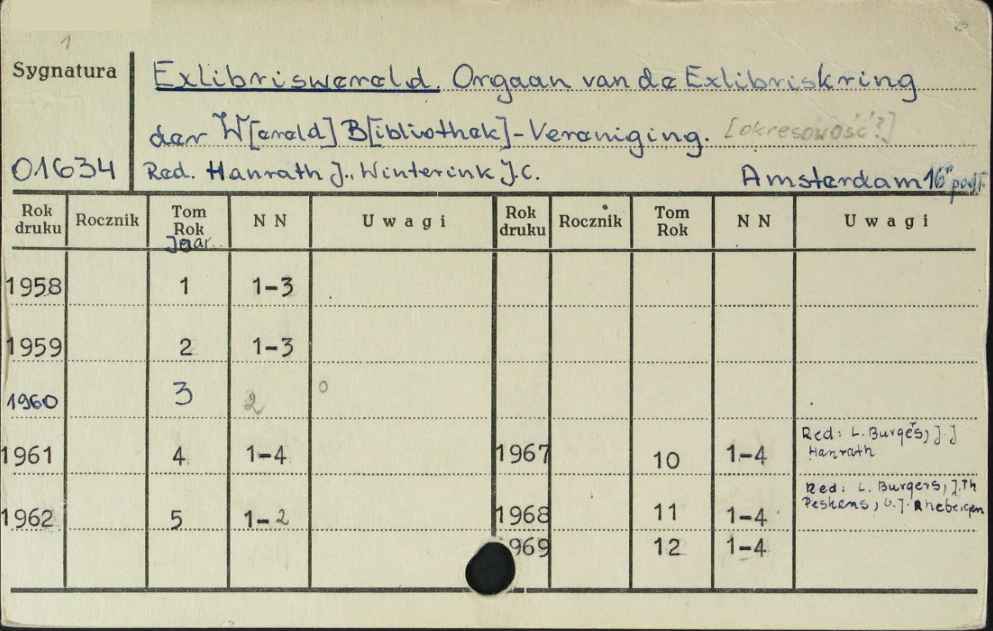 1
Sygnatura
Exlibriswereld. Orgaan van de Exlibriskring
der W[ereld] B[ibliotheek]-Vereniging. [okresowość?]
01634 Red. Hanrath J., Winterink J.C. Amsterdam 16°
Rok druku Rocznik Tom Rok Jaar. N N Uwagi Rok druku Rocznik Tom Rok N N Uwagi
1958 1 1-3
1959 2 1-3
1960 3 2
1961 4 1-4 1967 10 1-4 Red: L. Burgers, J. J Hanrath
1962 5 1-2 1968 11 1-4 Red: L. Burgers, J. Th Peskens, G. J.
1969 12 1-4